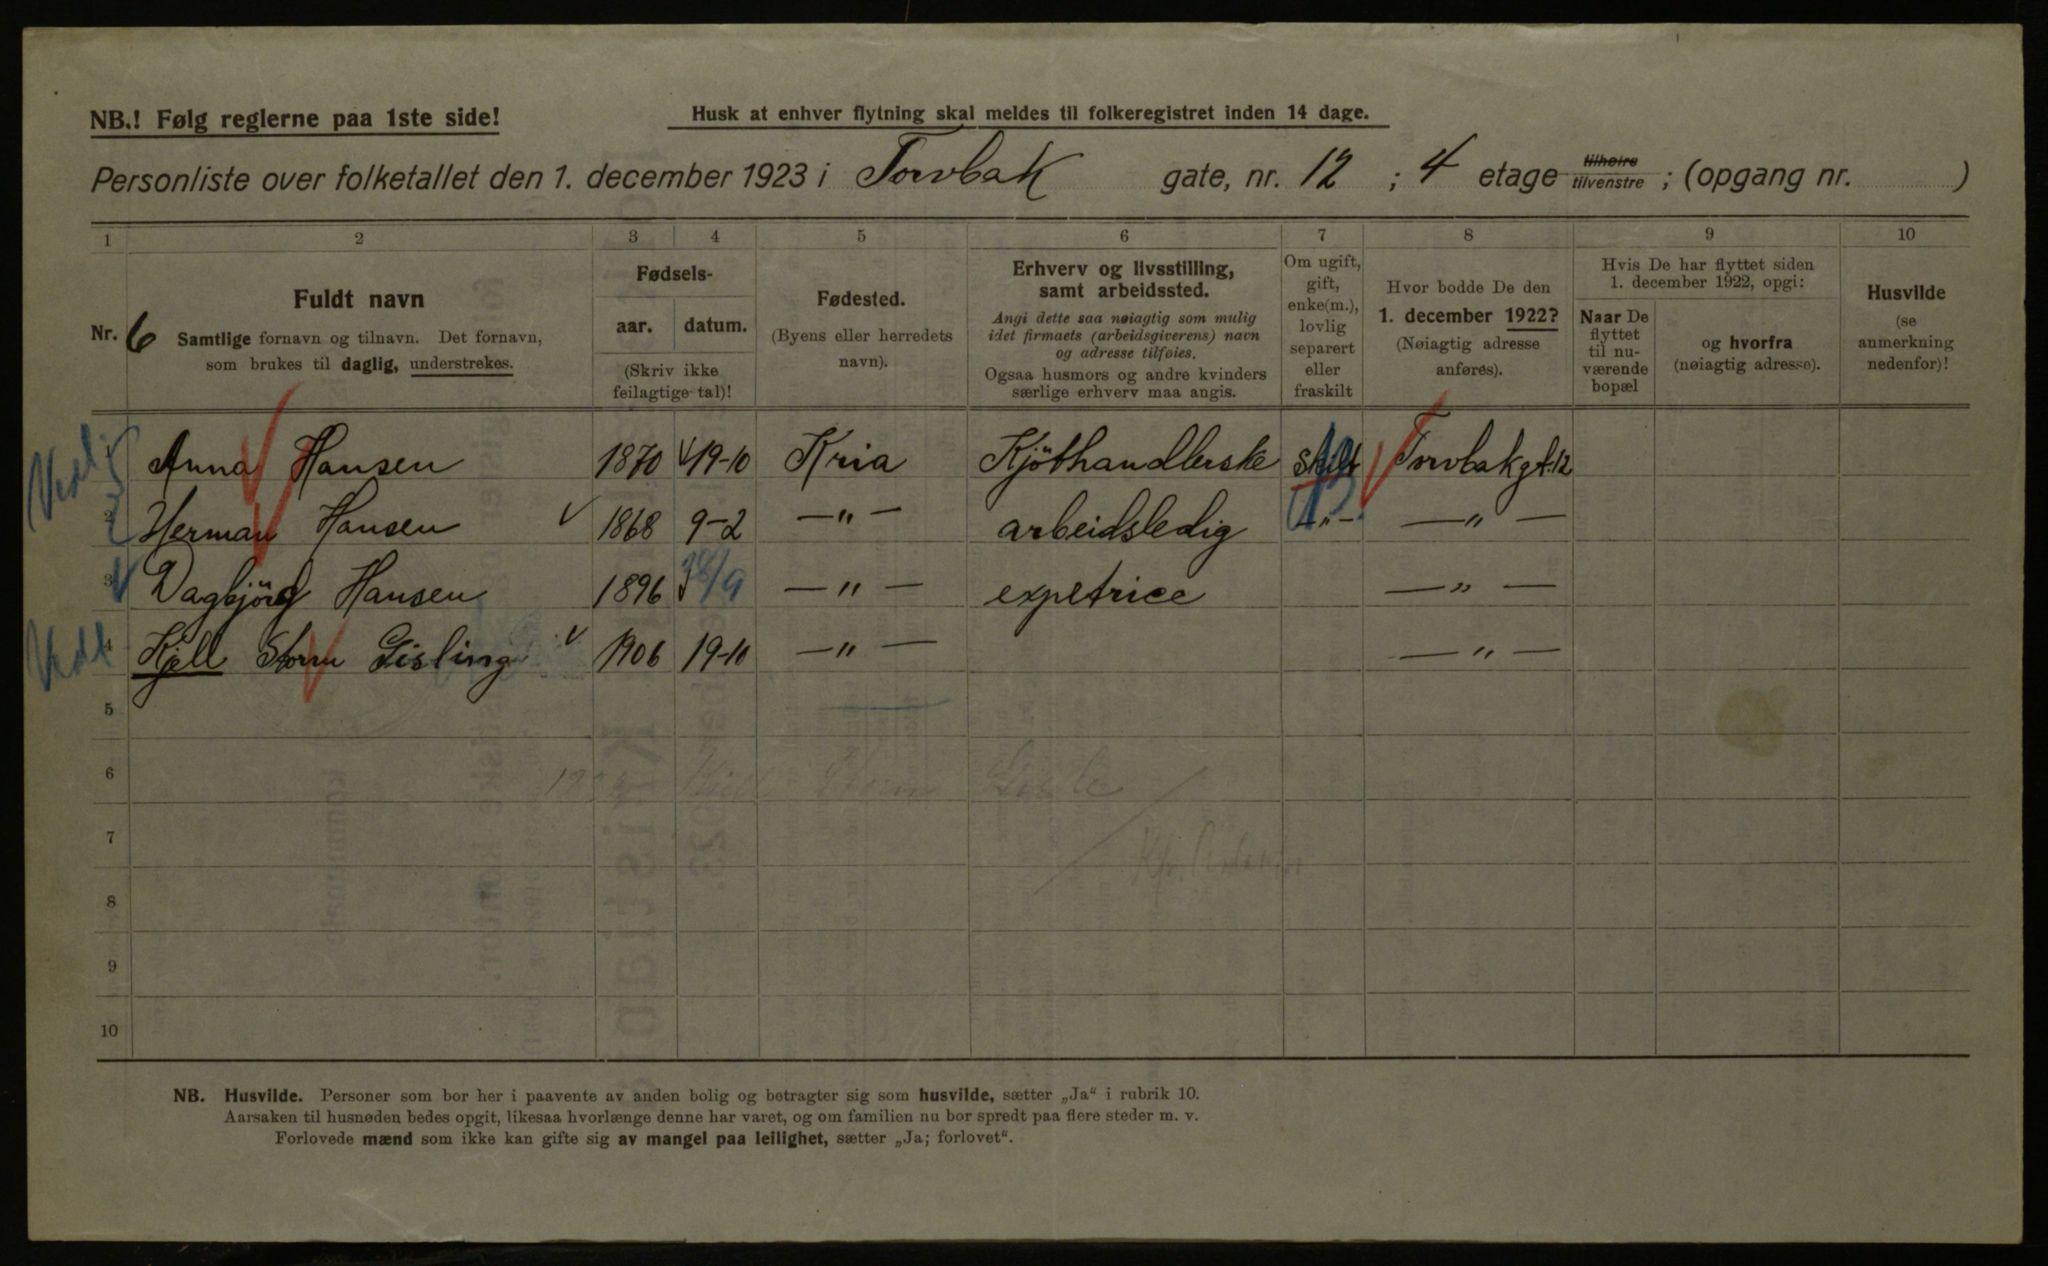 NB.! Følg reglerne paa 1ste side!
Husk at enhver flytning skal meldes til folkeregistret inden 14 dage.
Personliste over folketallet den 1. december 1923 i Torvbak gate, nr. 12 ; 4 etage tilhøire tilvenstre ; (opgang nr. )
1 2 3 4 5 6 7 8 9 10
Nr. 6
Fuldt navn
Samtlige fornavn og tilnavn. Det fornavn,
som brukes til daglig, understrekes.
Fødsels-
aar. datum.
(Skriv ikke
feilagtige tal)!
Fødested.
(Byens eller herredets
navn).
Erhverv og livsstilling,
samt arbeidssted.
Angi dette saa nøiagtig som mulig
idet firmaets (arbeidsgiverens) navn
og adresse tilføies.
Ogsaa husmors og andre kvinders
særlige erhverv maa angis.
Om ugift,
gift,
enke(m.),
lovlig
separert
eller
fraskilt
Hvor bodde De den
1. december 1922?
(Nøiagtig adresse
anføres).
Hvis De har flyttet siden
1. december 1922, opgi:
Naar De
flyttet
til nu-
værende
bopæl
og hvorfra
(nøiagtig adresse).
Husvilde
(se
anmerkning
nedenfor)!
1 Anna Hansen 1870 19-10 Kria Kjöthandlerske Skilt Torvbakgt. 12
2 Herman Hansen 1868 9-2 —"— arbeidsledig —"— —"—
3 Dagbjörg Hansen 1896 /9 —"— expetrice —"—
4 Kjell Storm Gisling 1906 19-10 —"— —"—
5
6 Kjell Storm
7
8
9
10
NB. Husvilde. Personer som bor her i paavente av anden bolig og betragter sig som husvilde, sætter „Ja“ i rubrik 10.
Aarsaken til husnøden bedes opgit, likesaa hvorlænge denne har varet, og om familien nu bor spredt paa flere steder m. v.
Forlovede mænd som ikke kan gifte sig av mangel paa leilighet, sætter „Ja; forlovet“.